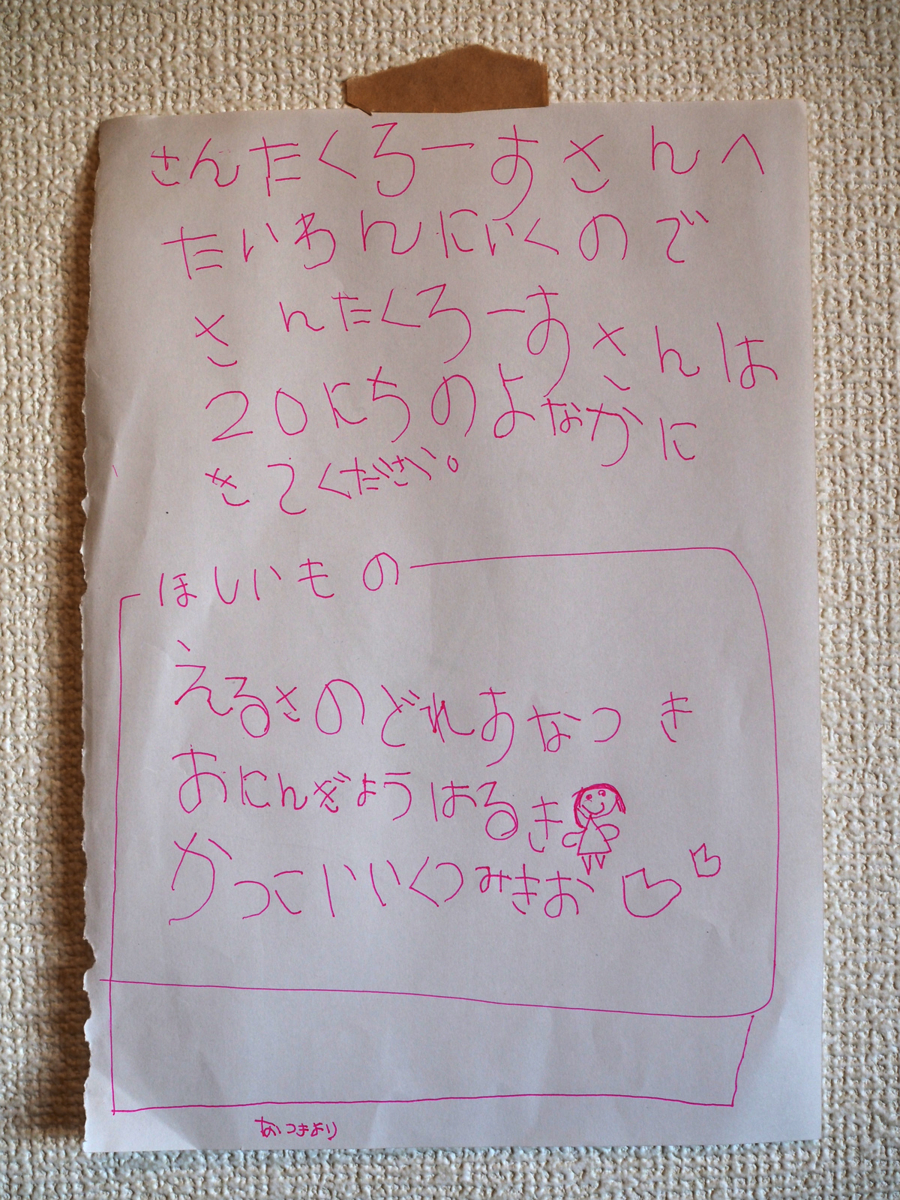 さんたくろーすさんへ
たいわんにいくので
さんたくろーすさんは
20にちのよなかに
きてください。
ほしいもの
えるさのどれすなつき
おにんぎょうはるき
かっこいいくつみきお
あつきより